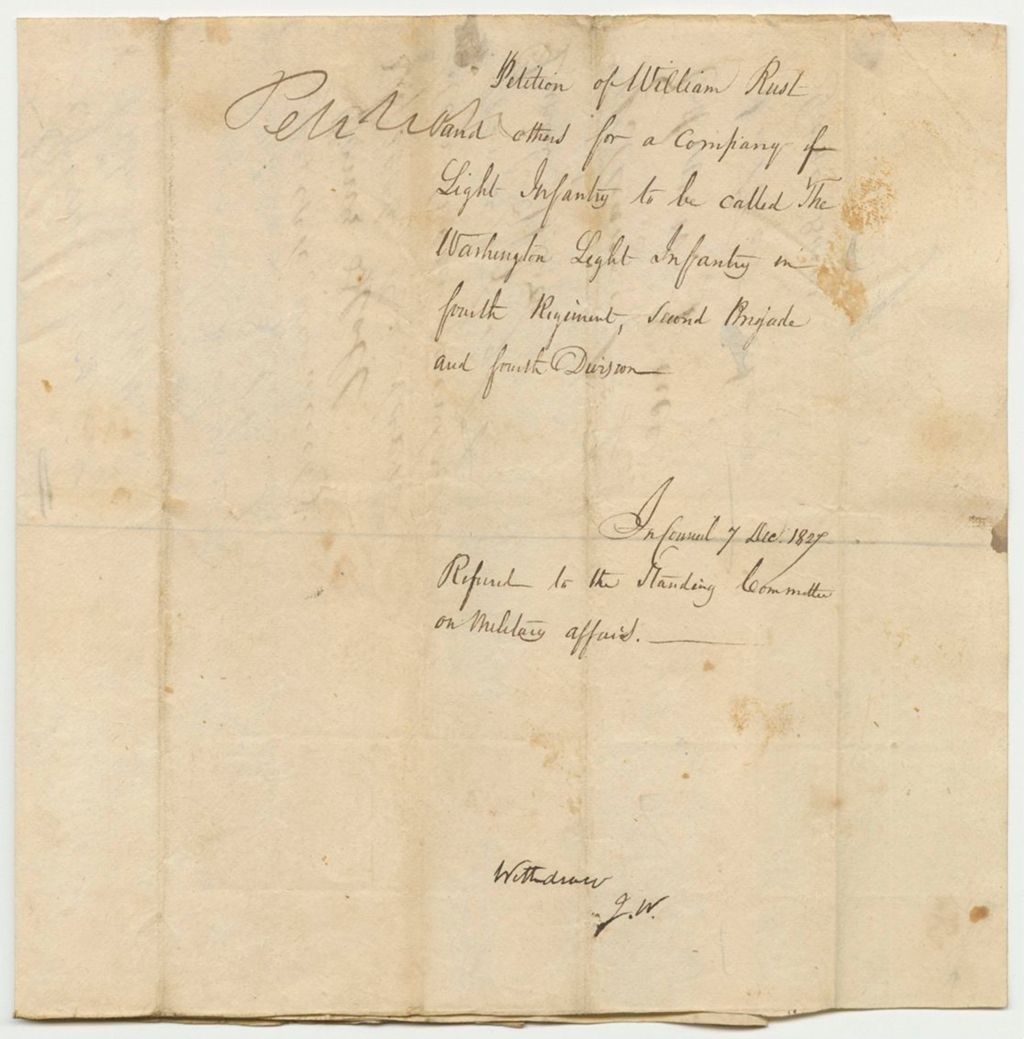 Petition of William Rust
Petition
and others for a Company of
Light Infantry to be called The
Washington Light Infantry in
fourth Regiment, Second Brigade
and fourth Division
In Council 7 Dec. 1827
Referred to the Standing Committee
on Military affairs.
Withdraw
J.W.